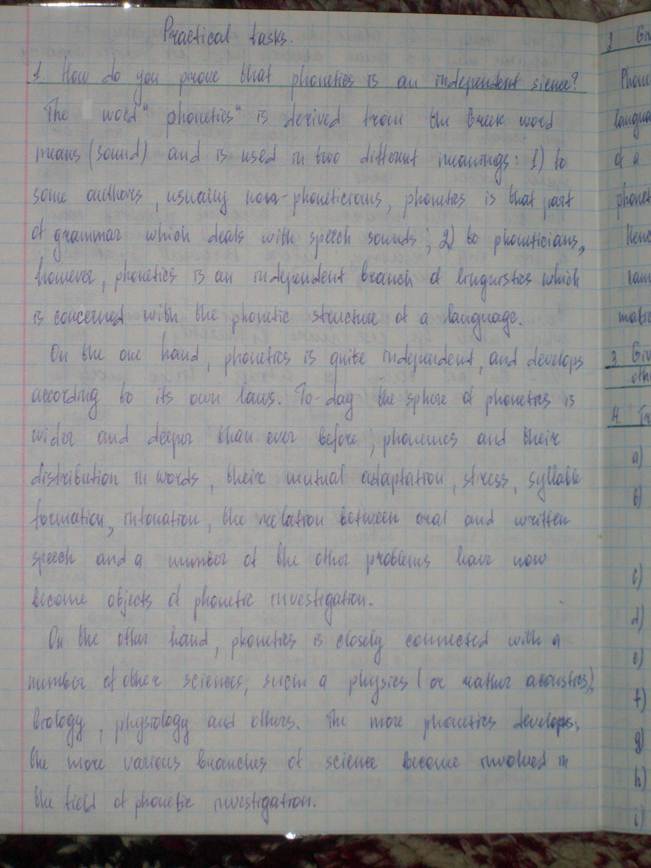 Practical tasks.
1. How do you prove that phonetics is an independent sience?
The word "phonetics" is derived from the Greek word
means (sound) and is used in two different meanings: 1) to
some authors, usually non-phoneticians, phonetics is that part
of grammar which deals with speech sounds; 2) to phoneticians,
however, phonetics is an independent branch of linguistics which
is concerned with the phonetic structure of a language.
On the one hand, phonetics is quite independent, and develops
according to its own laws. To-day the sphere of phonetics is
wider and deeper than ever before; phonemes and their
distribution in words, their mutual adaptation, stress, syllable
formation, intonation, the relation between oral and written
speech and a number of the other problems have now
become objects of phonetic investigation.
On the other hand, phonetics is closely connected with a
number of other sciences, such a physics (or rather acoustics),
biology, physiology and others. The more phonetics develops,
the more various branches of science become involved in
the field of phonetic investigation.
2. Giv
Phone
langua
of a
phonet
Henc
matic
3. Giv
othe
4. Tr
a)
b)
c)
d)
e)
f)
g)
h)
i)